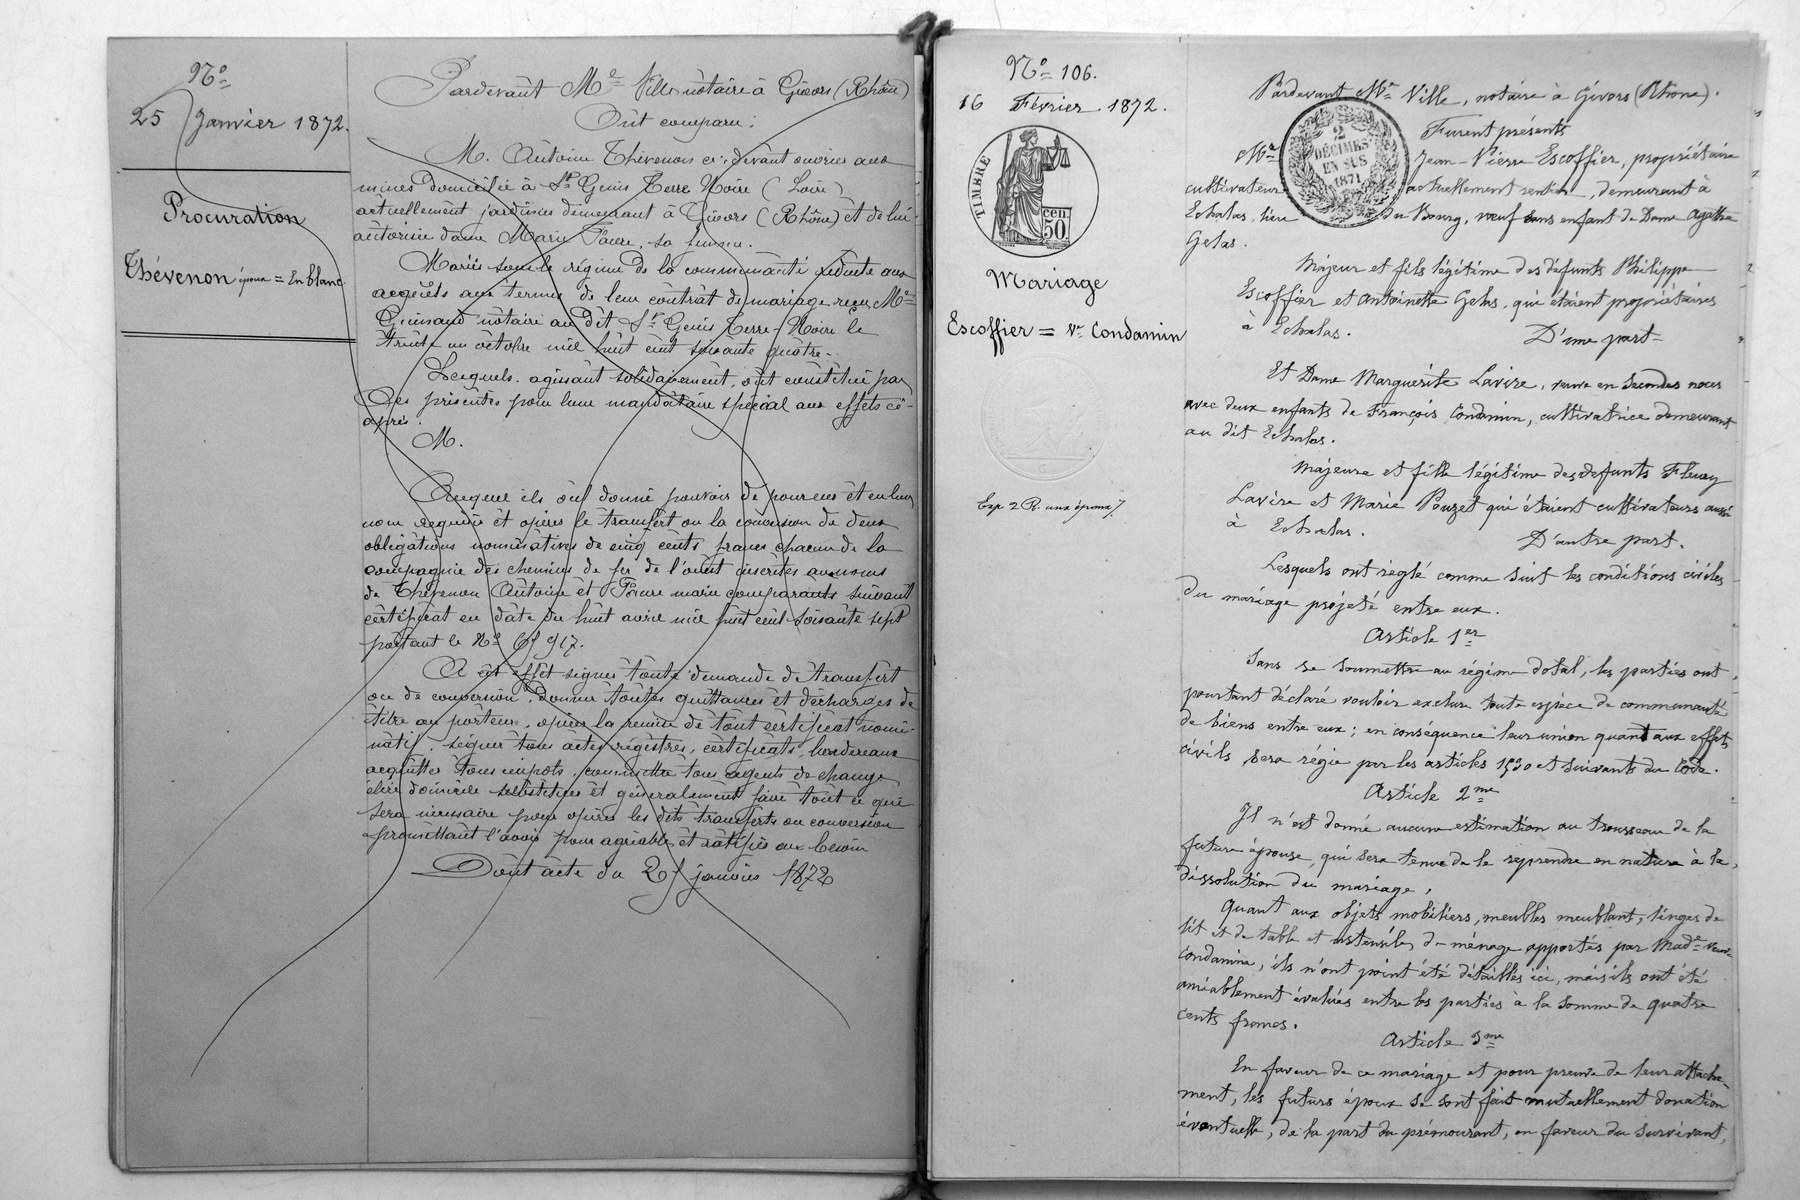 No
25 Janvier 1872.
Procuration
Thévenon époux = En blanc
Pardevant Me Ville notaire à Givors (Rhône)
Ont comparu:
M. Antoine Thévenon ci-devant ouvrier aux
mines domicilié à St Genis Terre Noire (Loire)
actuellement jardinier demeurant à Givors (Rhône) et de lui
autorisée dame Marie Faure, sa femme.
Mariés sous le régime de la communauté réduite aux
acquêts aux termes de leur contrat de mariage reçu Me
Guinand notaire au dit St Genis Terre-Noire le
trente un octobre mil huit cent soixante quatre.
Lesquels agissant solidairement, ont constitué par
ces présentes pour leur mandataire spécial aux effets ci-
après.
M.
Auquel ils ont donné pouvoir de pour eux et en leur
nom requérir et opérer le transfert ou la conversion de deux
obligations nominatives de cinq cents francs chacune de la
compagnie des chemins de fer de l'ouest inscrites aux noms
de Thévenon Antoine et Faure marie comparants suivant
certificat en date du huit avril mil huit cent soixante sept
portant le No
A cet effet signer toute demande de transfert
ou de conversion, donner toutes quittances et décharges de
titre au porteur, opérer la remise de tout certificat nomi-
natif, signer tous actes, registres, certificats, bordereaux
acquitter tous impôts, commettre tous agents de change
élire domicile substituer et généralement faire tout ce que
sera nécessaire pour opérer les dits transferts ou conversion
promettant l'avoir pour agréable et ratifier au besoin
Dont acte du 25 janvier 1872
No 106.
16 Février 1872.
TIMBRE
50 cen
Mariage
Escoffier = Ve Condamin
Exp 2 R. aux époux
Pardevant Me Ville, notaire à Givors (Rhône).
Furent présents
2 DÉCIMES EN SUS 1871
Mr Jean-Pierre Escoffier, propriétaire
cultivateur actuellement rentier, demeurant à
Echalas, lieu du Bourg, veuf sans enfant de Dame Agathe
Gelas.
Majeur et fils légitime des défunts Philippe
Escoffier et Antoinette Gelas, qui étaient propriétaires
à Echalas. D'une part-
Et Dame Marguerite Lavire, veuve en secondes noces
avec deux enfants de François Condamin, cultivatrice demeurant
au dit Echalas.
Majeure et fille légitime des défunts Fleury
Lavire et Marie Pouzet qui étaient cultivateurs aussi
à Echalas. D'autre part.
Lesquels ont réglé comme suit les conditions civiles
du mariage projeté entre eux.
Article 1er
Sans se soumettre au régime dotal, les parties ont
pourtant déclaré vouloir exclure toute espèce de communauté
de biens entre eux; en conséquence leur union quant aux effets
civils sera régie par les articles 1530 et suivants du Code.
Article 2me
Il n'est donné aucune estimation au trousseau de la
future épouse, qui sera tenue de le reprendre en nature à la
dissolution du mariage,
Quant aux objets mobiliers, meubles meublant, linges de
lit et de table et ustensiles de ménage apportés par Made veuve
Condamine, ils n'ont point été détaillés ici, mais ils ont été
amiablement évalués entre les parties à la somme de quatre
cents francs.
Article 3me
En faveur de ce mariage et pour preuve de leur attache-
ment, les futurs époux se sont fait mutuellement donation
éventuelle, de la part du prémourant, en faveur du survivant,